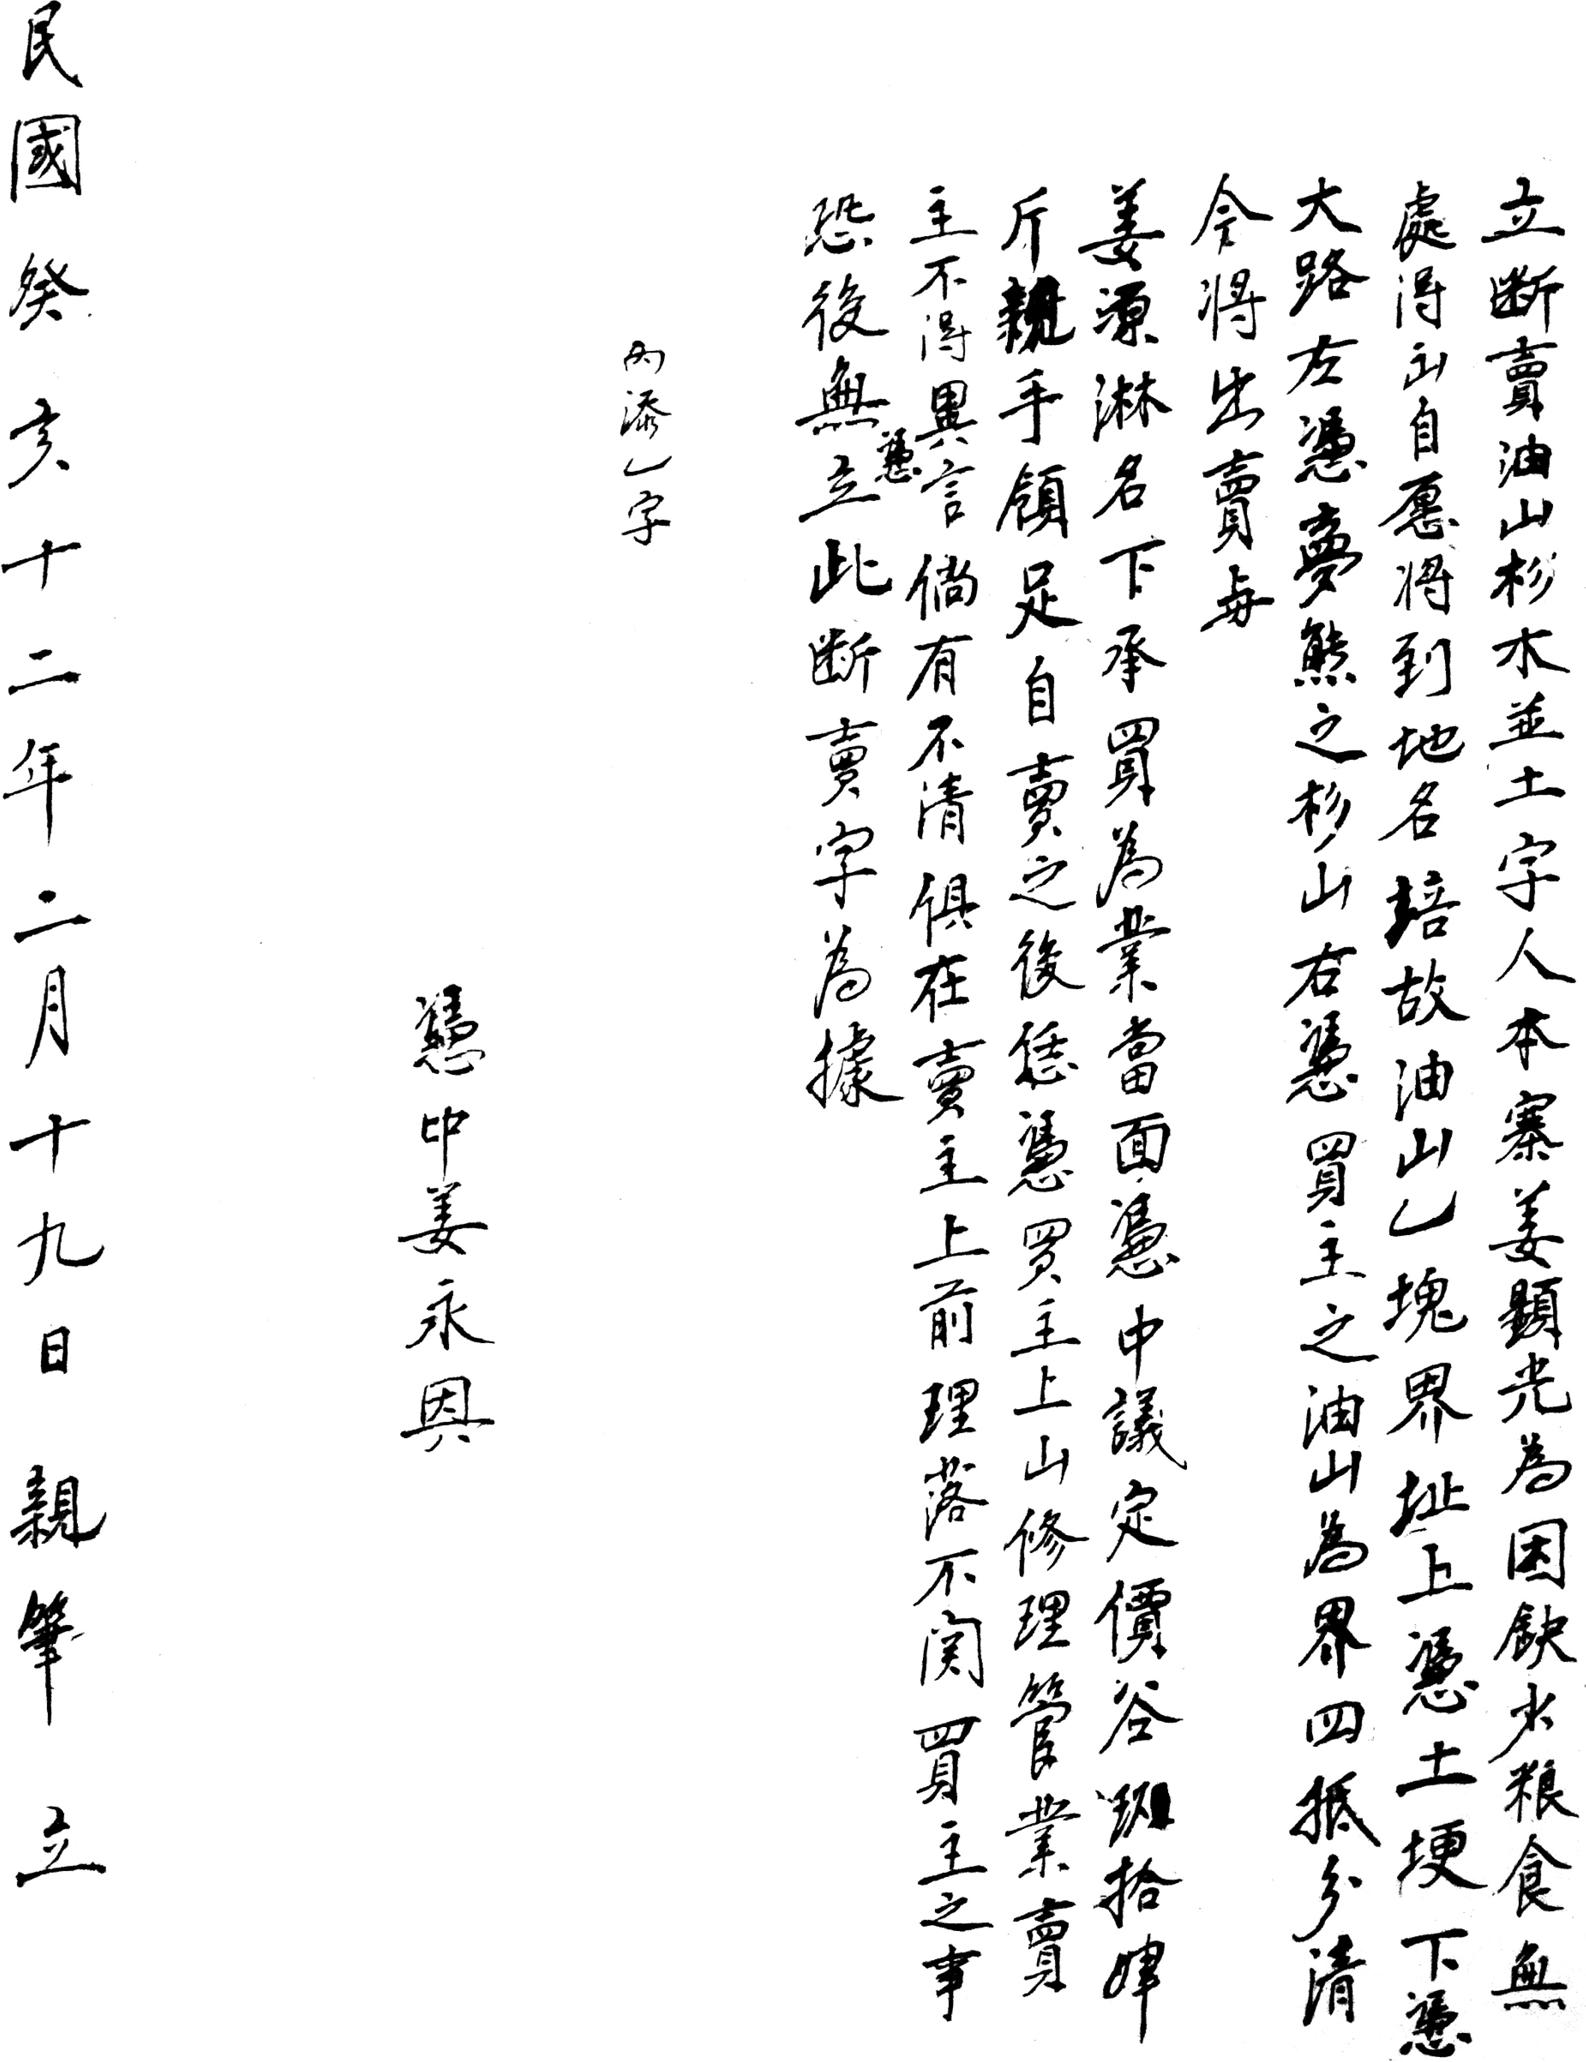 立断賣油山杉木並土字人本寨姜顕光為因缺少粮食無
處得出自愿将到地名培故油山乙塊界址上憑土埂下憑
大路左憑夢熊之杉山右憑買主之油山為界四抵分清
今将出賣与
姜源淋名下承買為業當面憑中議定價谷 拾肆
斤親手領足自賣之後恁憑買主上山修理管業賣
主不得異言倘有不清俱在賣主上前理落不関買主之事
恐後無憑立此断賣字為據
內添乙字
憑中姜永興
民國癸亥十二年二月十九日親筆立